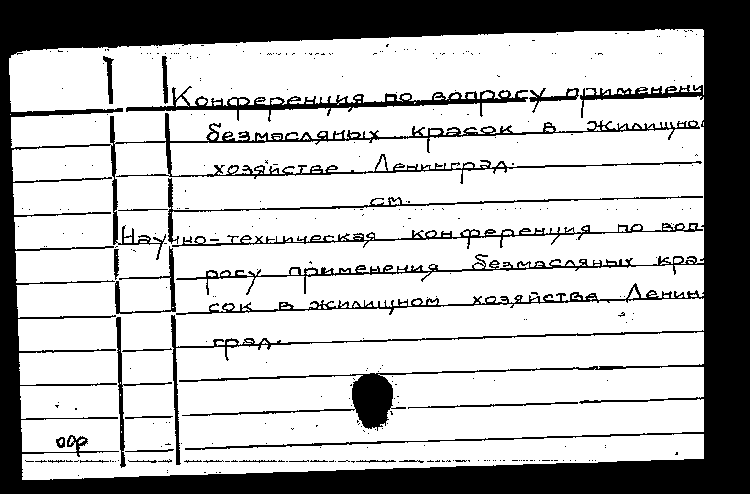 Конференция по вопросу применени
безмасляных красок в жилищно
хозяйстве. Ленинград.
см.
Научно-техническая конференция по воп-
росу применения безмасляных кра-
сок в жилищном хозяйстве Ленин-
град.
оор